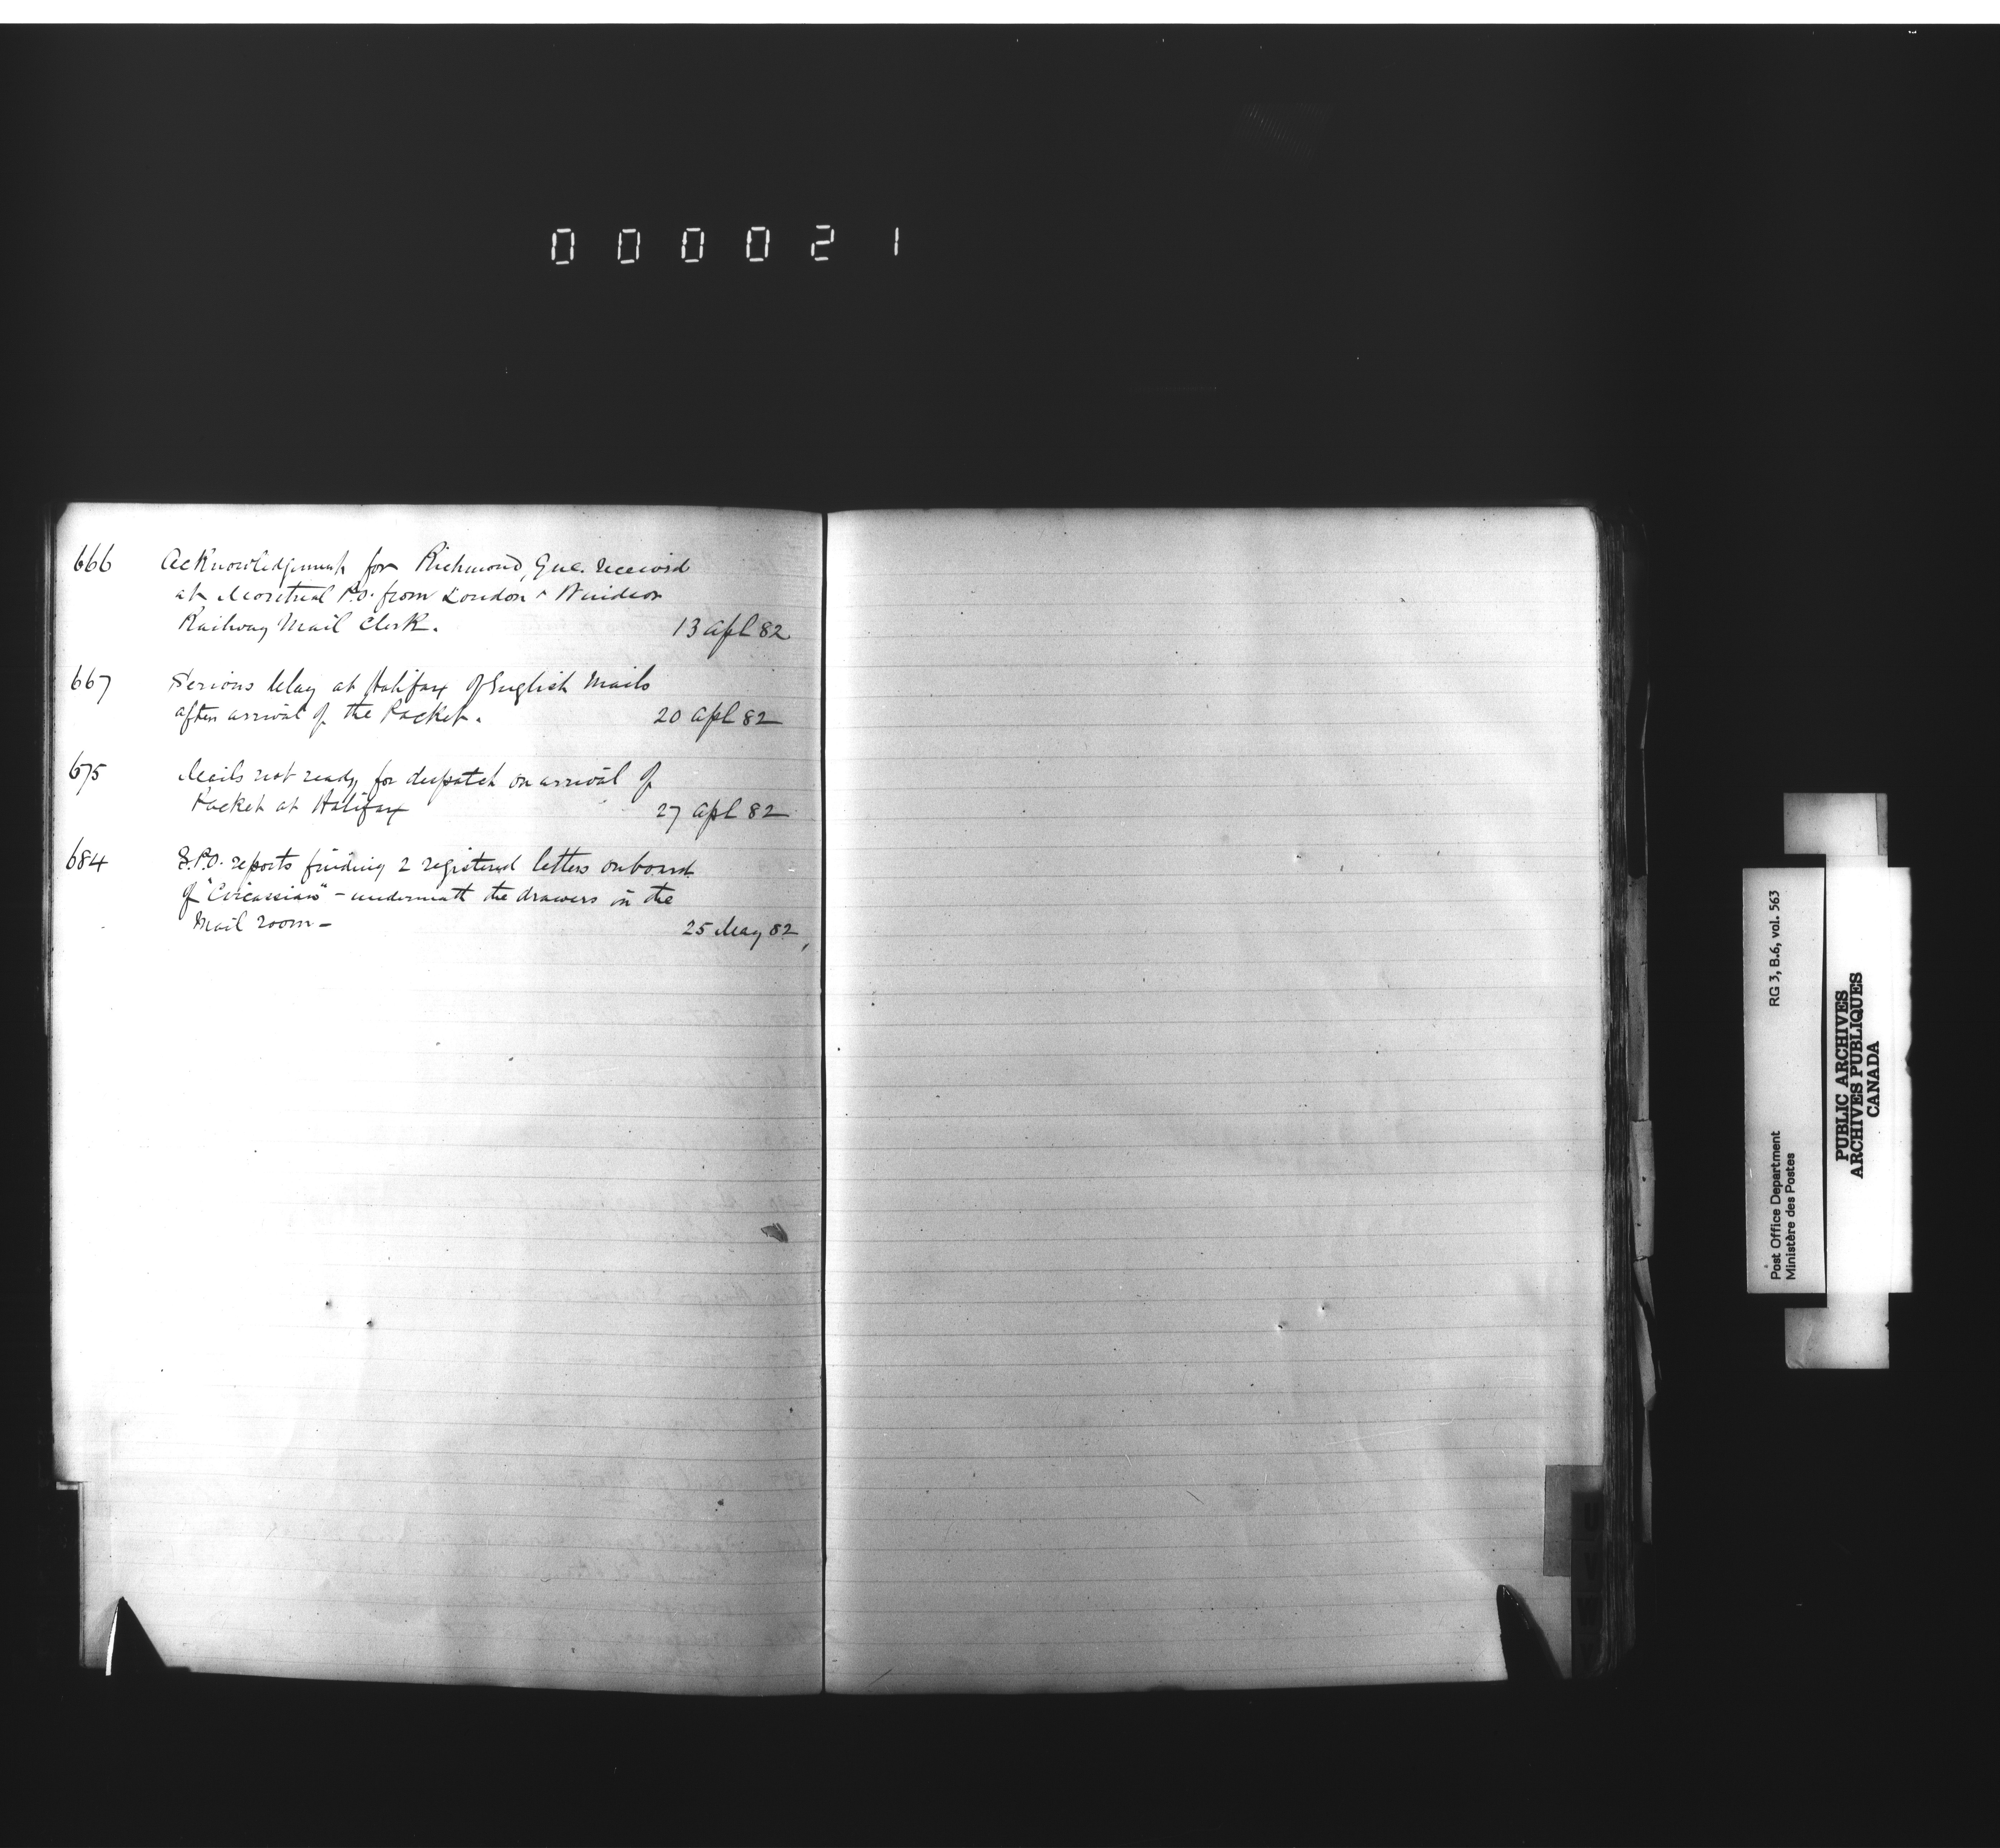 000021
666 Acknowledgement for Richmond, Que. received
at Montreal P.O. from London & Windsor
Railway Mail Clerk. 13 Apl 82
667 Serious delay at Halifax of English Mails
after arrival of the Packet. 20 Apl 82
675 Mails not ready for despatch on arrival of
Packet at Halifax 27 Apl 82
684 P.O. reports finding 2 registered letters onboard
of "Circassian" - underneath the drawers in the
Mail room - 25 May 82
RG 3, B.6, vol. 563
Post Office Department
Ministère des Postes
PUBLIC ARCHIVES
ARCHIVES PUBLIQUES
CANADA